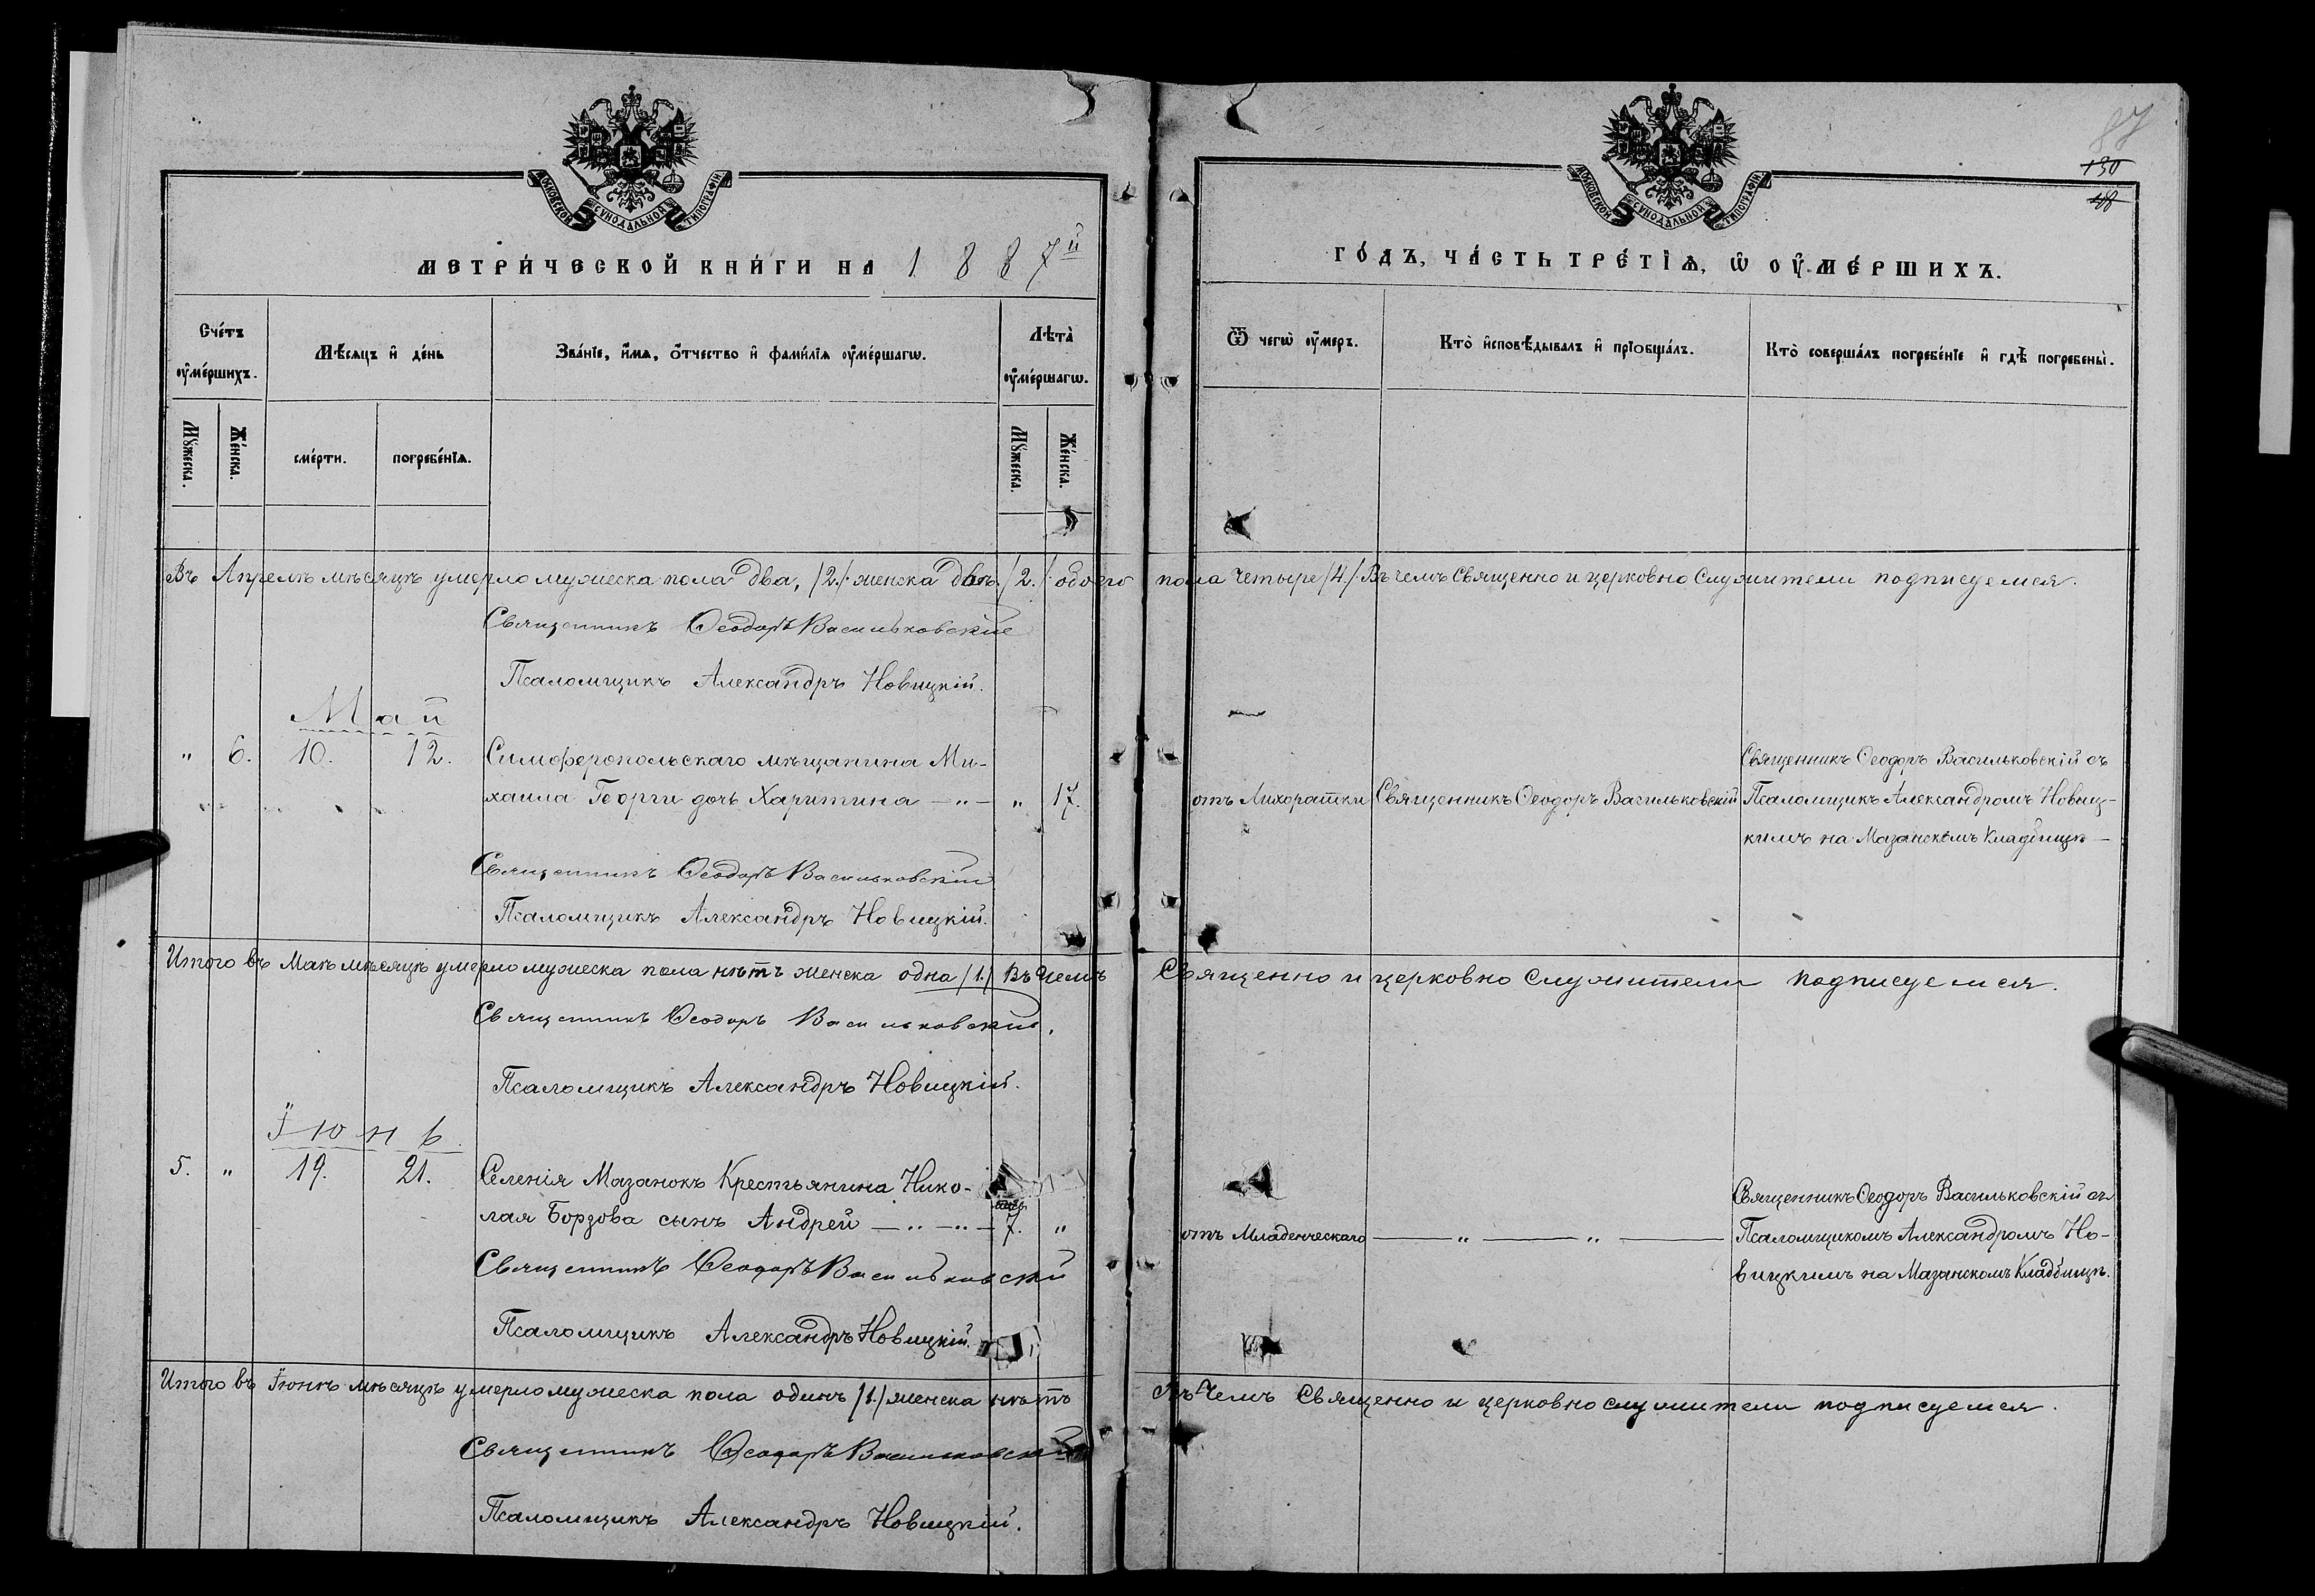 87
130
МОСКОВСКОЙ СѴНОДАЛЬНОЙ ТИПОГРАФІИ
МЕТРИ́ЧЕСКОЙ КНИ́ГИ НА 1887й
Сче́тъ оу҆ме́ршихъ.
Мѣ́сяцъ и҆ де́нь
Зва́нїе, и҆́мя, ѻ҆́тчество и҆ фами́лїя оу҆ме́ршагѡ.
Лѣта̀ оу҆ме́ршагѡ.
Мꙋ́жеска.
Же́нска.
сме́рти.
погребе́нїѧ.
Мꙋ́жеска.
Же́нска.
МОСКОВСКОЙ СѴНОДАЛЬНОЙ ТИПОГРАФІИ
ГО́ДЪ, ЧА́СТЬ ТРЕ́ТЇѦ, Ѡ҆ ОУ҆МЕ́РШИХЪ.
Ѿ чегѡ̀ оу҆́меръ.
Кто̀ и҆сповѣ́дывалъ и҆ прїобща́лъ.
Кто̀ соверша́лъ погребе́нїе и҆ гдѣ̀ погребены̀.
Въ Апрелѣ мѣсяцѣ умерло мужеска пола два, /2./ женска двѣ /2./ обоего пола четыре /4./ Въ чемъ Священно и церковно служители подписуемся.
Священникъ Ѳеодоръ Васильковскій
Псаломщикъ Александръ Новицкій.
Май
" 6. 10. 12. Симферопольскаго мѣщанина Ми-
хаила Георги дочь Харитина — " — " 17.
отъ Лихорадки
Священникъ Ѳеодоръ Васильковскій
Священникъ Ѳеодоръ Васильковскій съ
Псаломщикъ Александромъ Новиц-
кимъ на Мазанскомъ Кладбищѣ —
Священникъ Ѳеодоръ Васильковскій
Псаломщикъ Александръ Новицкій.
Итого въ Маѣ мѣсяцѣ умерло мужеска пола нѣтъ женска одна /1./ Въ чемъ Священно и церковно служители подписуемся.
Священникъ Ѳеодоръ Васильковскій.
Псаломщикъ Александръ Новицкій.
Іюнь
5. " 19. 21. Селенія Мазанокъ Крестьянина Нико-
лая Борзова сынъ Андрей — " — " — 7. "
отъ Младенческаго — " — " —
Священникъ Ѳеодоръ Васильковскій съ
Псаломщикомъ Александромъ Но-
вицкимъ на Мазанскомъ Кладбищѣ.
Священникъ Ѳеодоръ Васильковскій
Псаломщикъ Александръ Новицкій.
Итого въ Іюнѣ мѣсяцѣ умерло мужеска пола одинъ /1./ женска нѣтъ Въ чемъ Священно и церковно служители подписуемся.
Священникъ Ѳеодоръ Васильковскій
Псаломщикъ Александръ Новицкій.